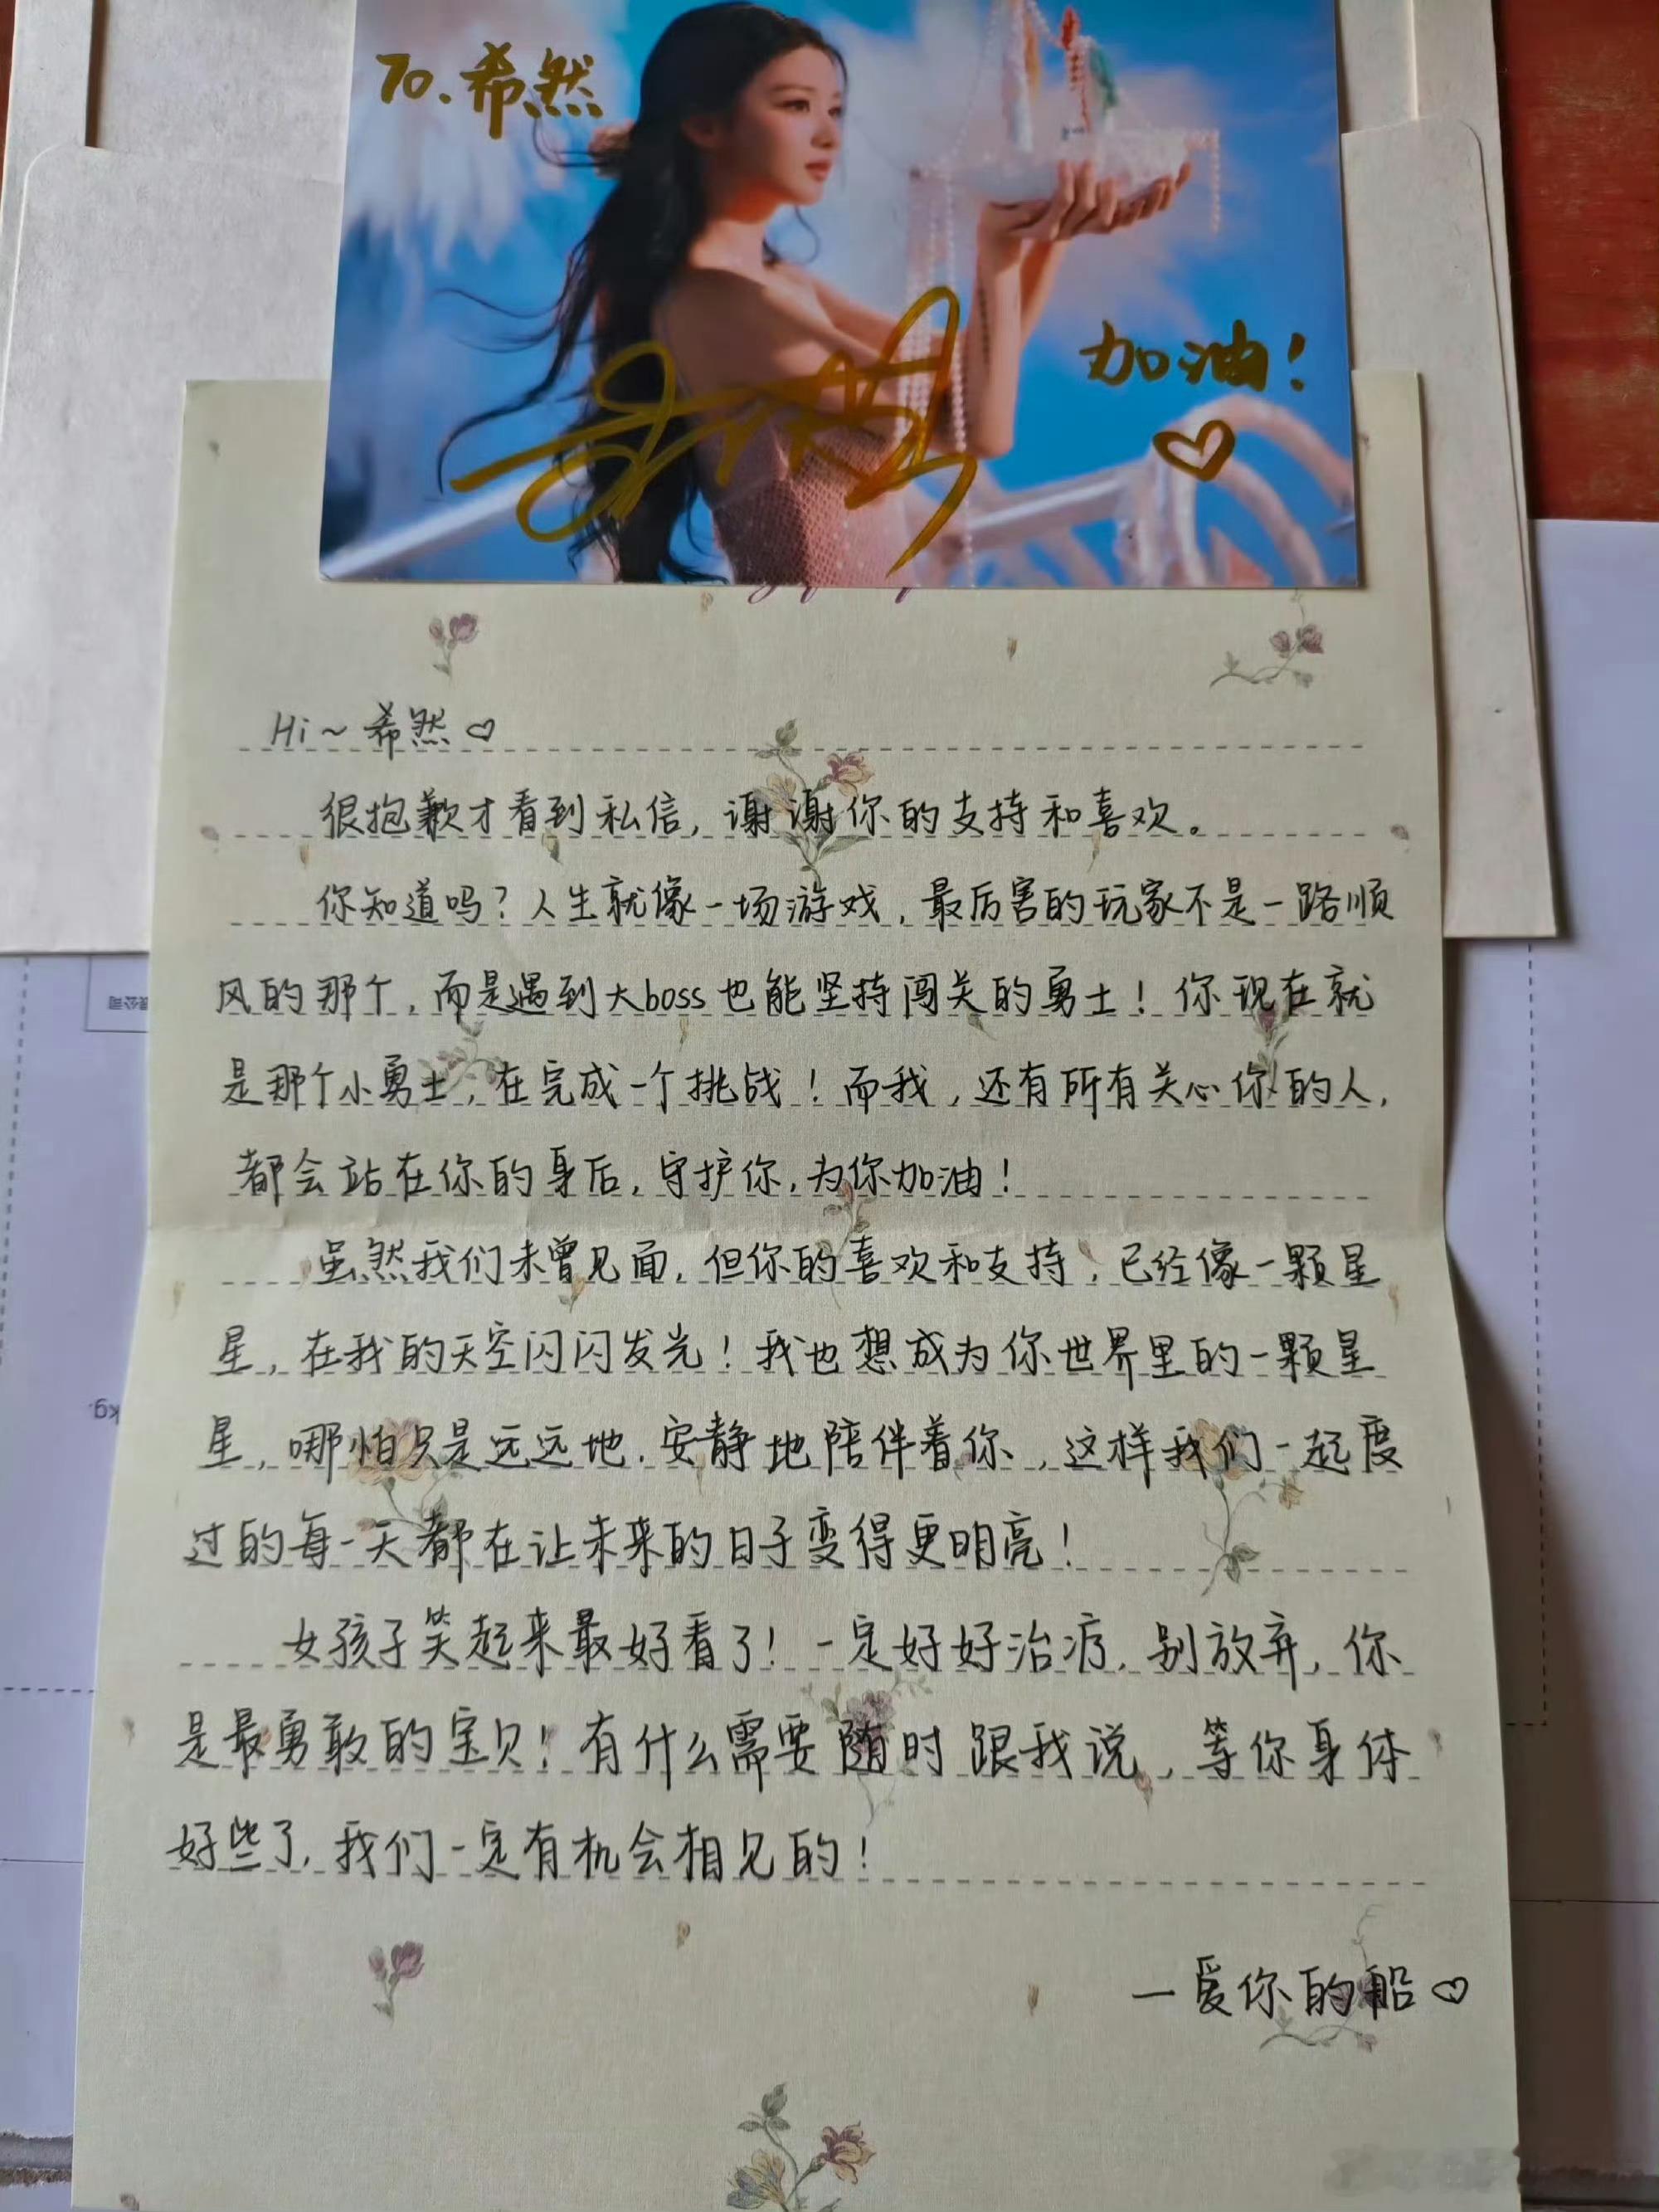 To.希然
加油!
Hi~希然
很抱歉才看到私信,谢谢你的支持和喜欢。
你知道吗?人生就像一场游戏,最厉害的玩家不是一路顺
风的那个,而是遇到大boss也能坚持闯关的勇士!你现在就
是那个小勇士,在完成一个挑战!而我,还有所有关心你的人,
都会站在你的身后,守护你,为你加油!
虽然我们未曾见面,但你的喜欢和支持,已经像一颗星
星,在我的天空闪闪发光!我也想成为你世界里的一颗星
星,哪怕只是远远地.安静地陪伴着你,这样我们一起度
过的每一天都在让未来的日子变得更明亮!
女孩子笑起来最好看了!一定好好治疗,别放弃,你
是最勇敢的宝贝!有什么需要随时跟我说,等你身体
好些了,我们一定有机会相见的!
—爱你的船
kg.